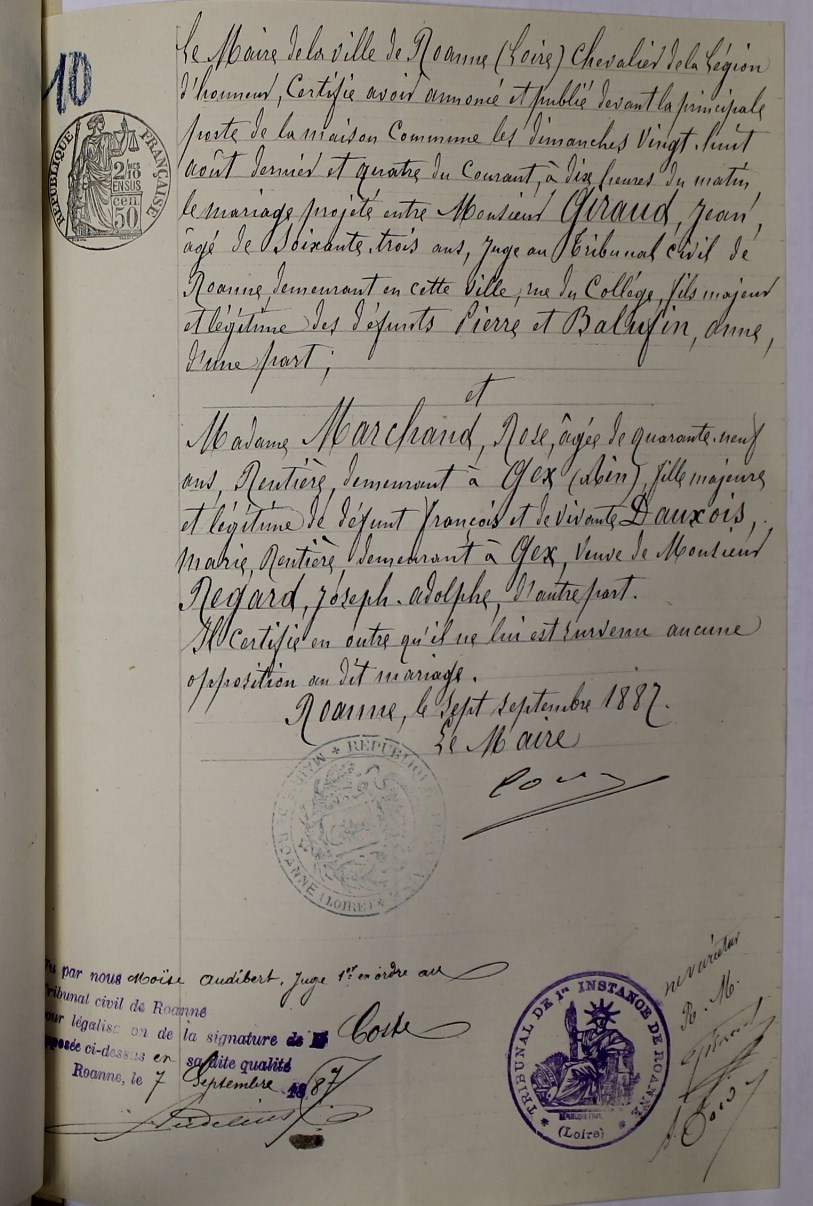 10
RÉPUBLIQUE FRANÇAISE
2/10
EN SUS
50 cen.
Le Maire de la ville de Roanne (Loire) Chevalier de la Légion
d'honneur, Certifie avoir annoncé et publié devant la principale
porte de la maison Commune les dimanches Vingt-huit
août dernier et quatre du Courant, à dix heures du matin,
le mariage projeté entre Monsieur Giraud, Jean,
âgé de Soixante-trois ans, Juge au Tribunal Civil de
Roanne, demeurant en cette Ville, rue du Collège, fils majeur
et légitime des défunts Pierre et Balufin, Anne,
d'une part;
et
Madame Marchand, Rose, âgée de quarante-neuf
ans, Rentière, demeurant à Gex (Ain), fille majeure
et légitime de défunt François et de vivante Dauxois,
Marie, Rentière, demeurant à Gex, Veuve de Monsieur
Regard, Joseph-Adolphe, d'autre part.
Il Certifie en outre qu'il ne lui est survenu aucune
opposition au dit mariage.
Roanne, le Sept Septembre 1887.
Le Maire
MAIRIE DE ROANNE (LOIRE) RÉPUBLIQUE
Vu par nous Moïse Audibert, Juge 1er en ordre au
Tribunal civil de Roanne
pour légalisation de la signature de M Coste
apposée ci-dessus en sa dite qualité
Roanne, le 7 Septembre 1887
TRIBUNAL DE 1re INSTANCE DE ROANNE
(Loire)
ne varietur
R. M.
Giraud